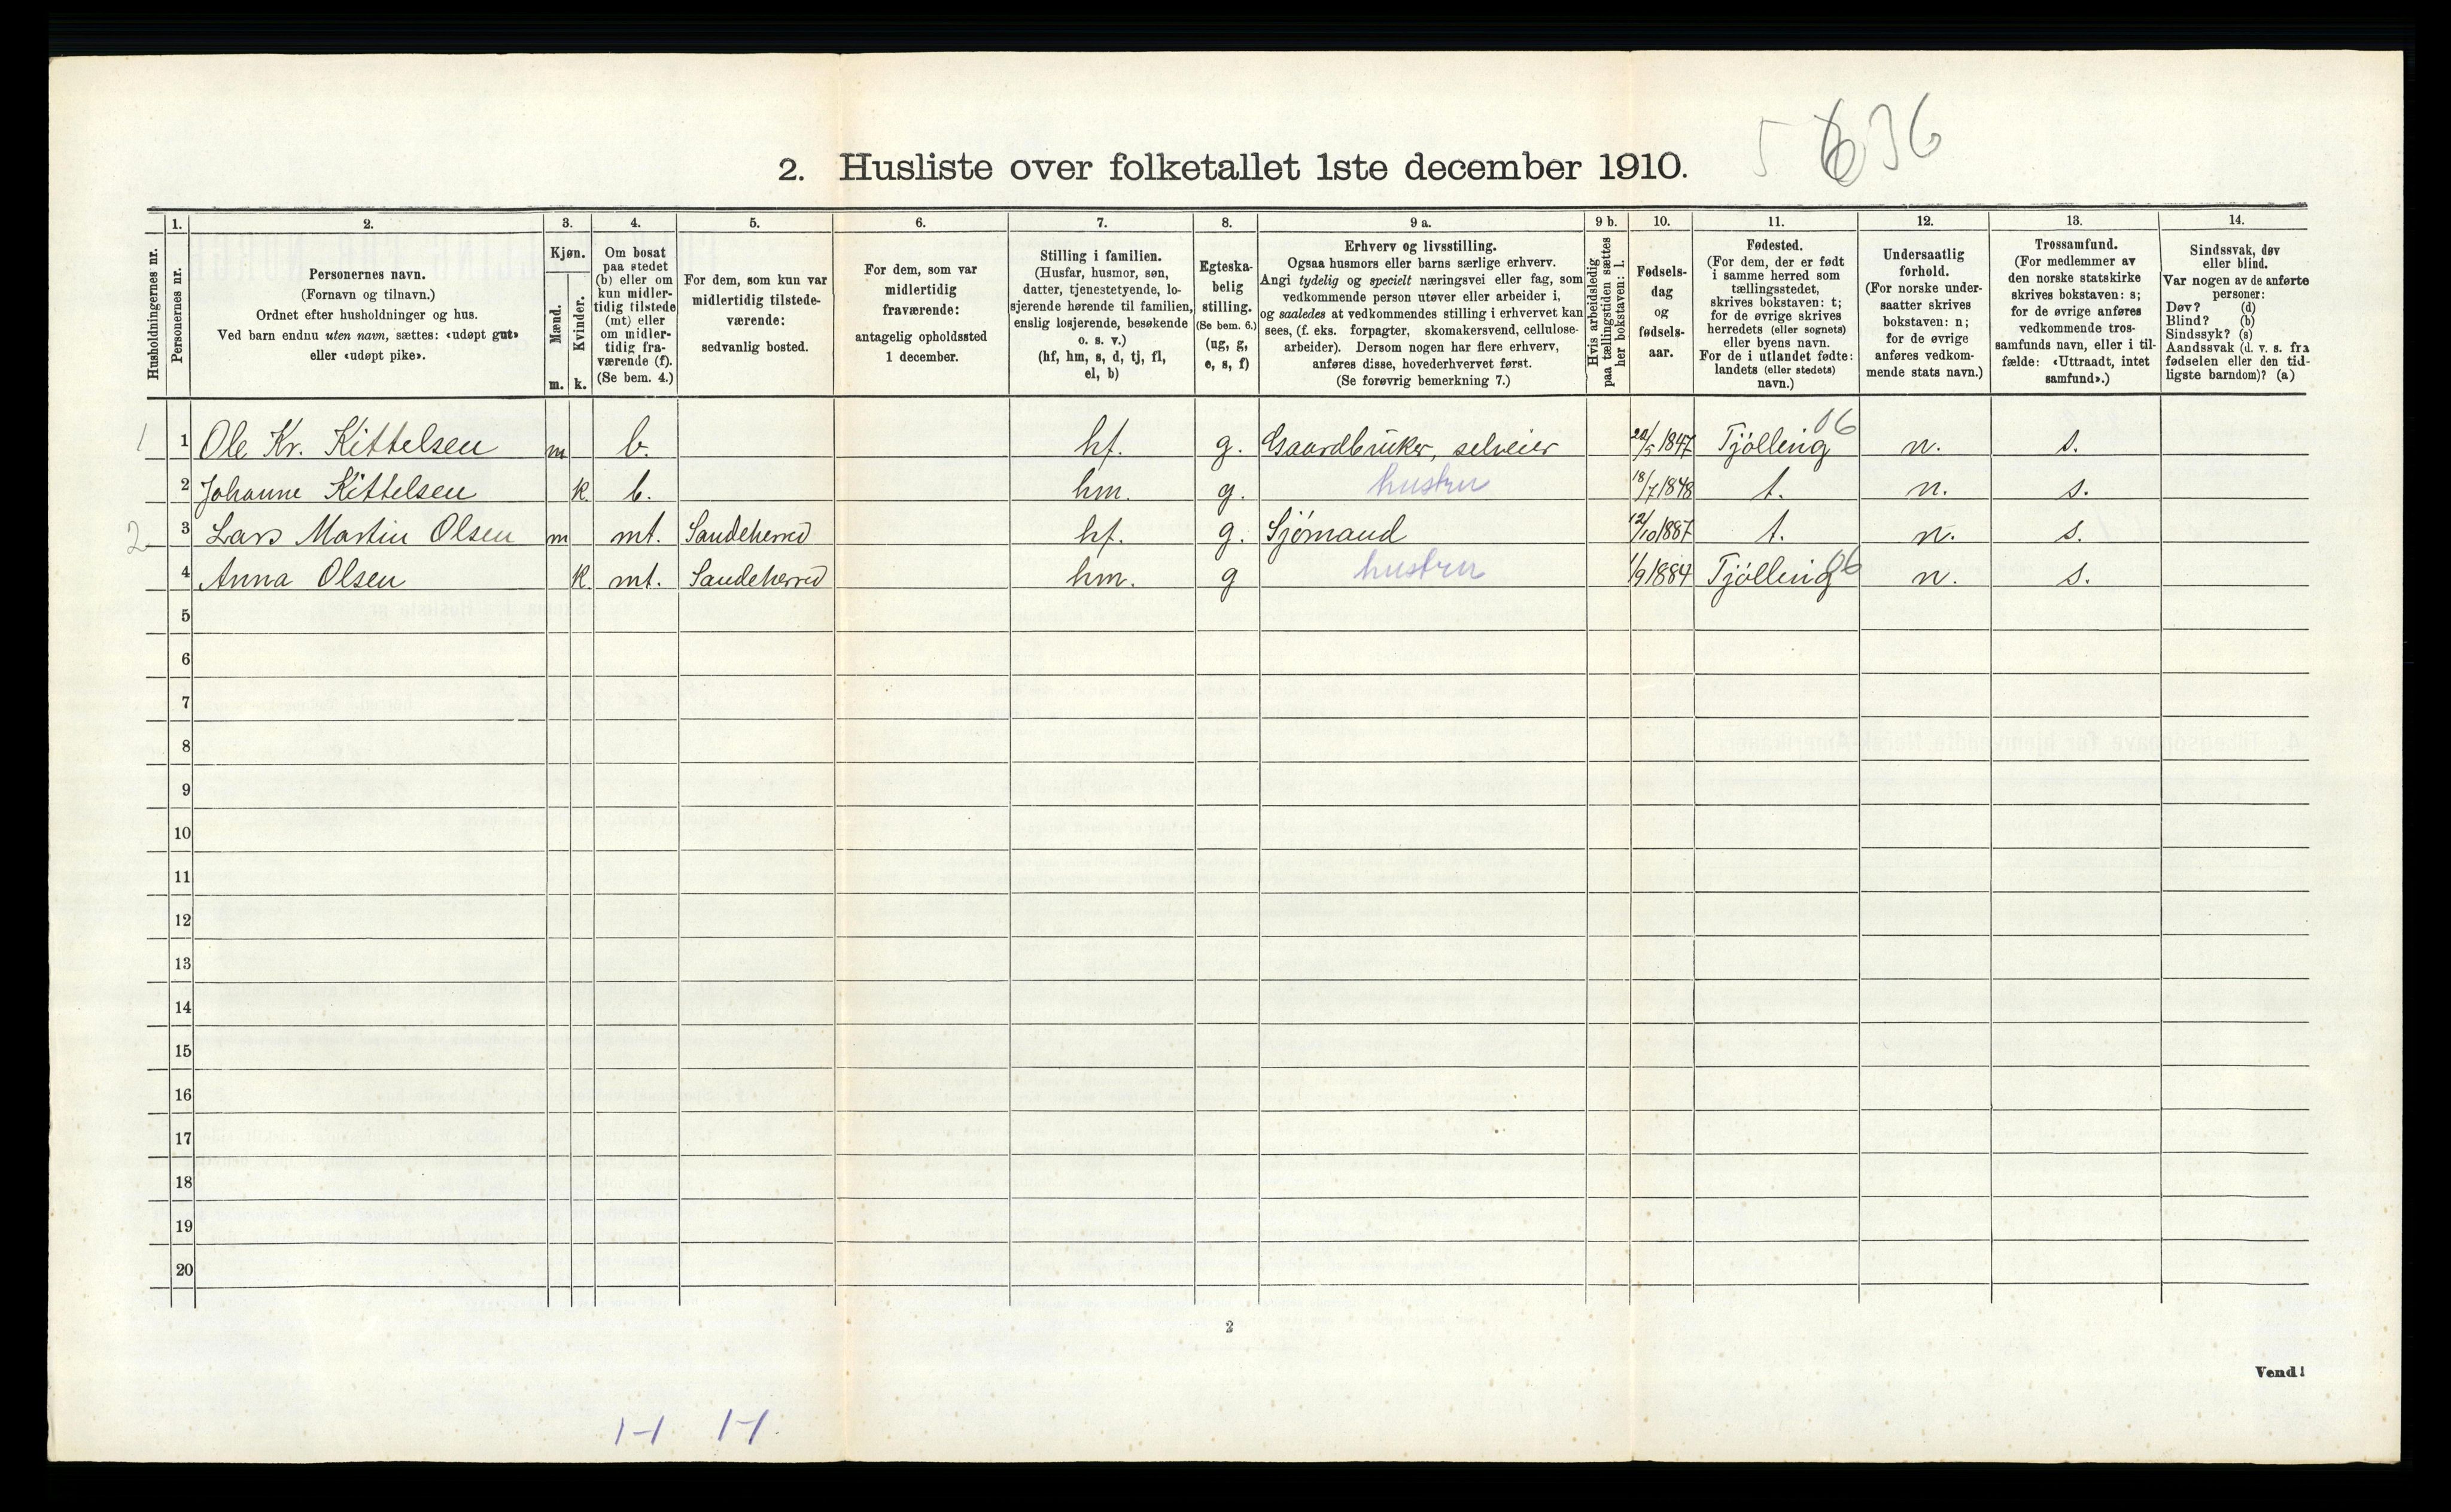 5 6 36
2. Husliste over folketallet 1ste december 1910.
1. 2. 3. 4. 5. 6. 7. 8. 9 a. 9 b. 10. 11. 12. 13. 14.
Husholdningernes nr.
Personernes nr.
Personernes navn.
(Fornavn og tilnavn.)
Ordnet efter husholdninger og hus.
Ved barn endnu uten navn, sættes: «udøpt gut»
eller «udøpt pike».
Kjøn.
Mænd.
Kvinder.
m. k.
Om bosat
paa stedet
(b) eller om
kun midler-
tidig tilstede
(mt) eller
om midler-
tidig fra-
værende (f).
(Se bem. 4.)
For dem, som kun var
midlertidig tilstede-
værende:
sedvanlig bosted.
For dem, som var
midlertidig
fraværende:
antagelig opholdssted
1 december.
Stilling i familien.
(Husfar, husmor, søn,
datter, tjenestetyende, lo-
sjerende hørende til familien,
enslig losjerende, besøkende
o. s. v.)
(hf, hm, s, d, tj, fl,
el, b)
Egteska-
belig
stilling.
(Se bem. 6.)
(ug, g,
e, s, f)
Erhverv og livsstilling.
Ogsaa husmors eller barns særlige erhverv.
Angi tydelig og specielt næringsvei eller fag, som
vedkommende person utøver eller arbeider i,
og saaledes at vedkommendes stilling i erhvervet kan
sees, (f. eks. forpagter, skomakersvend, cellulose-
arbeider). Dersom nogen har flere erhverv,
anføres disse, hovederhvervet først.
(Se forøvrig bemerkning 7.)
Hvis arbeidsledig
paa tællingstiden sættes
her bokstaven: l.
Fødsels-
dag
og
fødsels-
aar.
Fødested.
(For dem, der er født
i samme herred som
tællingsstedet,
skrives bokstaven: t;
for de øvrige skrives
herredets (eller sognets)
eller byens navn.
For de i utlandet fødte:
landets (eller stedets)
navn.)
Undersaatlig
forhold.
(For norske under-
saatter skrives
bokstaven: n;
for de øvrige
anføres vedkom-
mende stats navn.)
Trossamfund.
(For medlemmer av
den norske statskirke
skrives bokstaven: s;
for de øvrige anføres
vedkommende tros-
samfunds navn, eller i til-
fælde: «Uttraadt, intet
samfund».)
Sindssvak, døv
eller blind.
Var nogen av de anførte
personer:
Døv? (d)
Blind? (b)
Sindssyk? (s)
Aandssvak (d. v. s. fra
fødselen eller den tid-
ligste barndom)? (a)
1 1 Ole Kr. Kittelsen m b. hf. g. Gaardbruker, selveier 20/5 1847 Tjølling 06 n. s.
2 Johanne Kittelsen k. b. hm. g. hustru 18/7 1848 t. n. s.
2 3 Lars Martin Olsen m mt. Sandeherred hf. g. Sjømand 12/10 1887 t. n. s.
4 Anna Olsen k. mt. Sandeherred hm. g hustru 1/9 1884 Tjølling 06 n. s.
5
6
7
8
9
10
11
12
13
14
15
16
17
18
19
20
2
Vend!